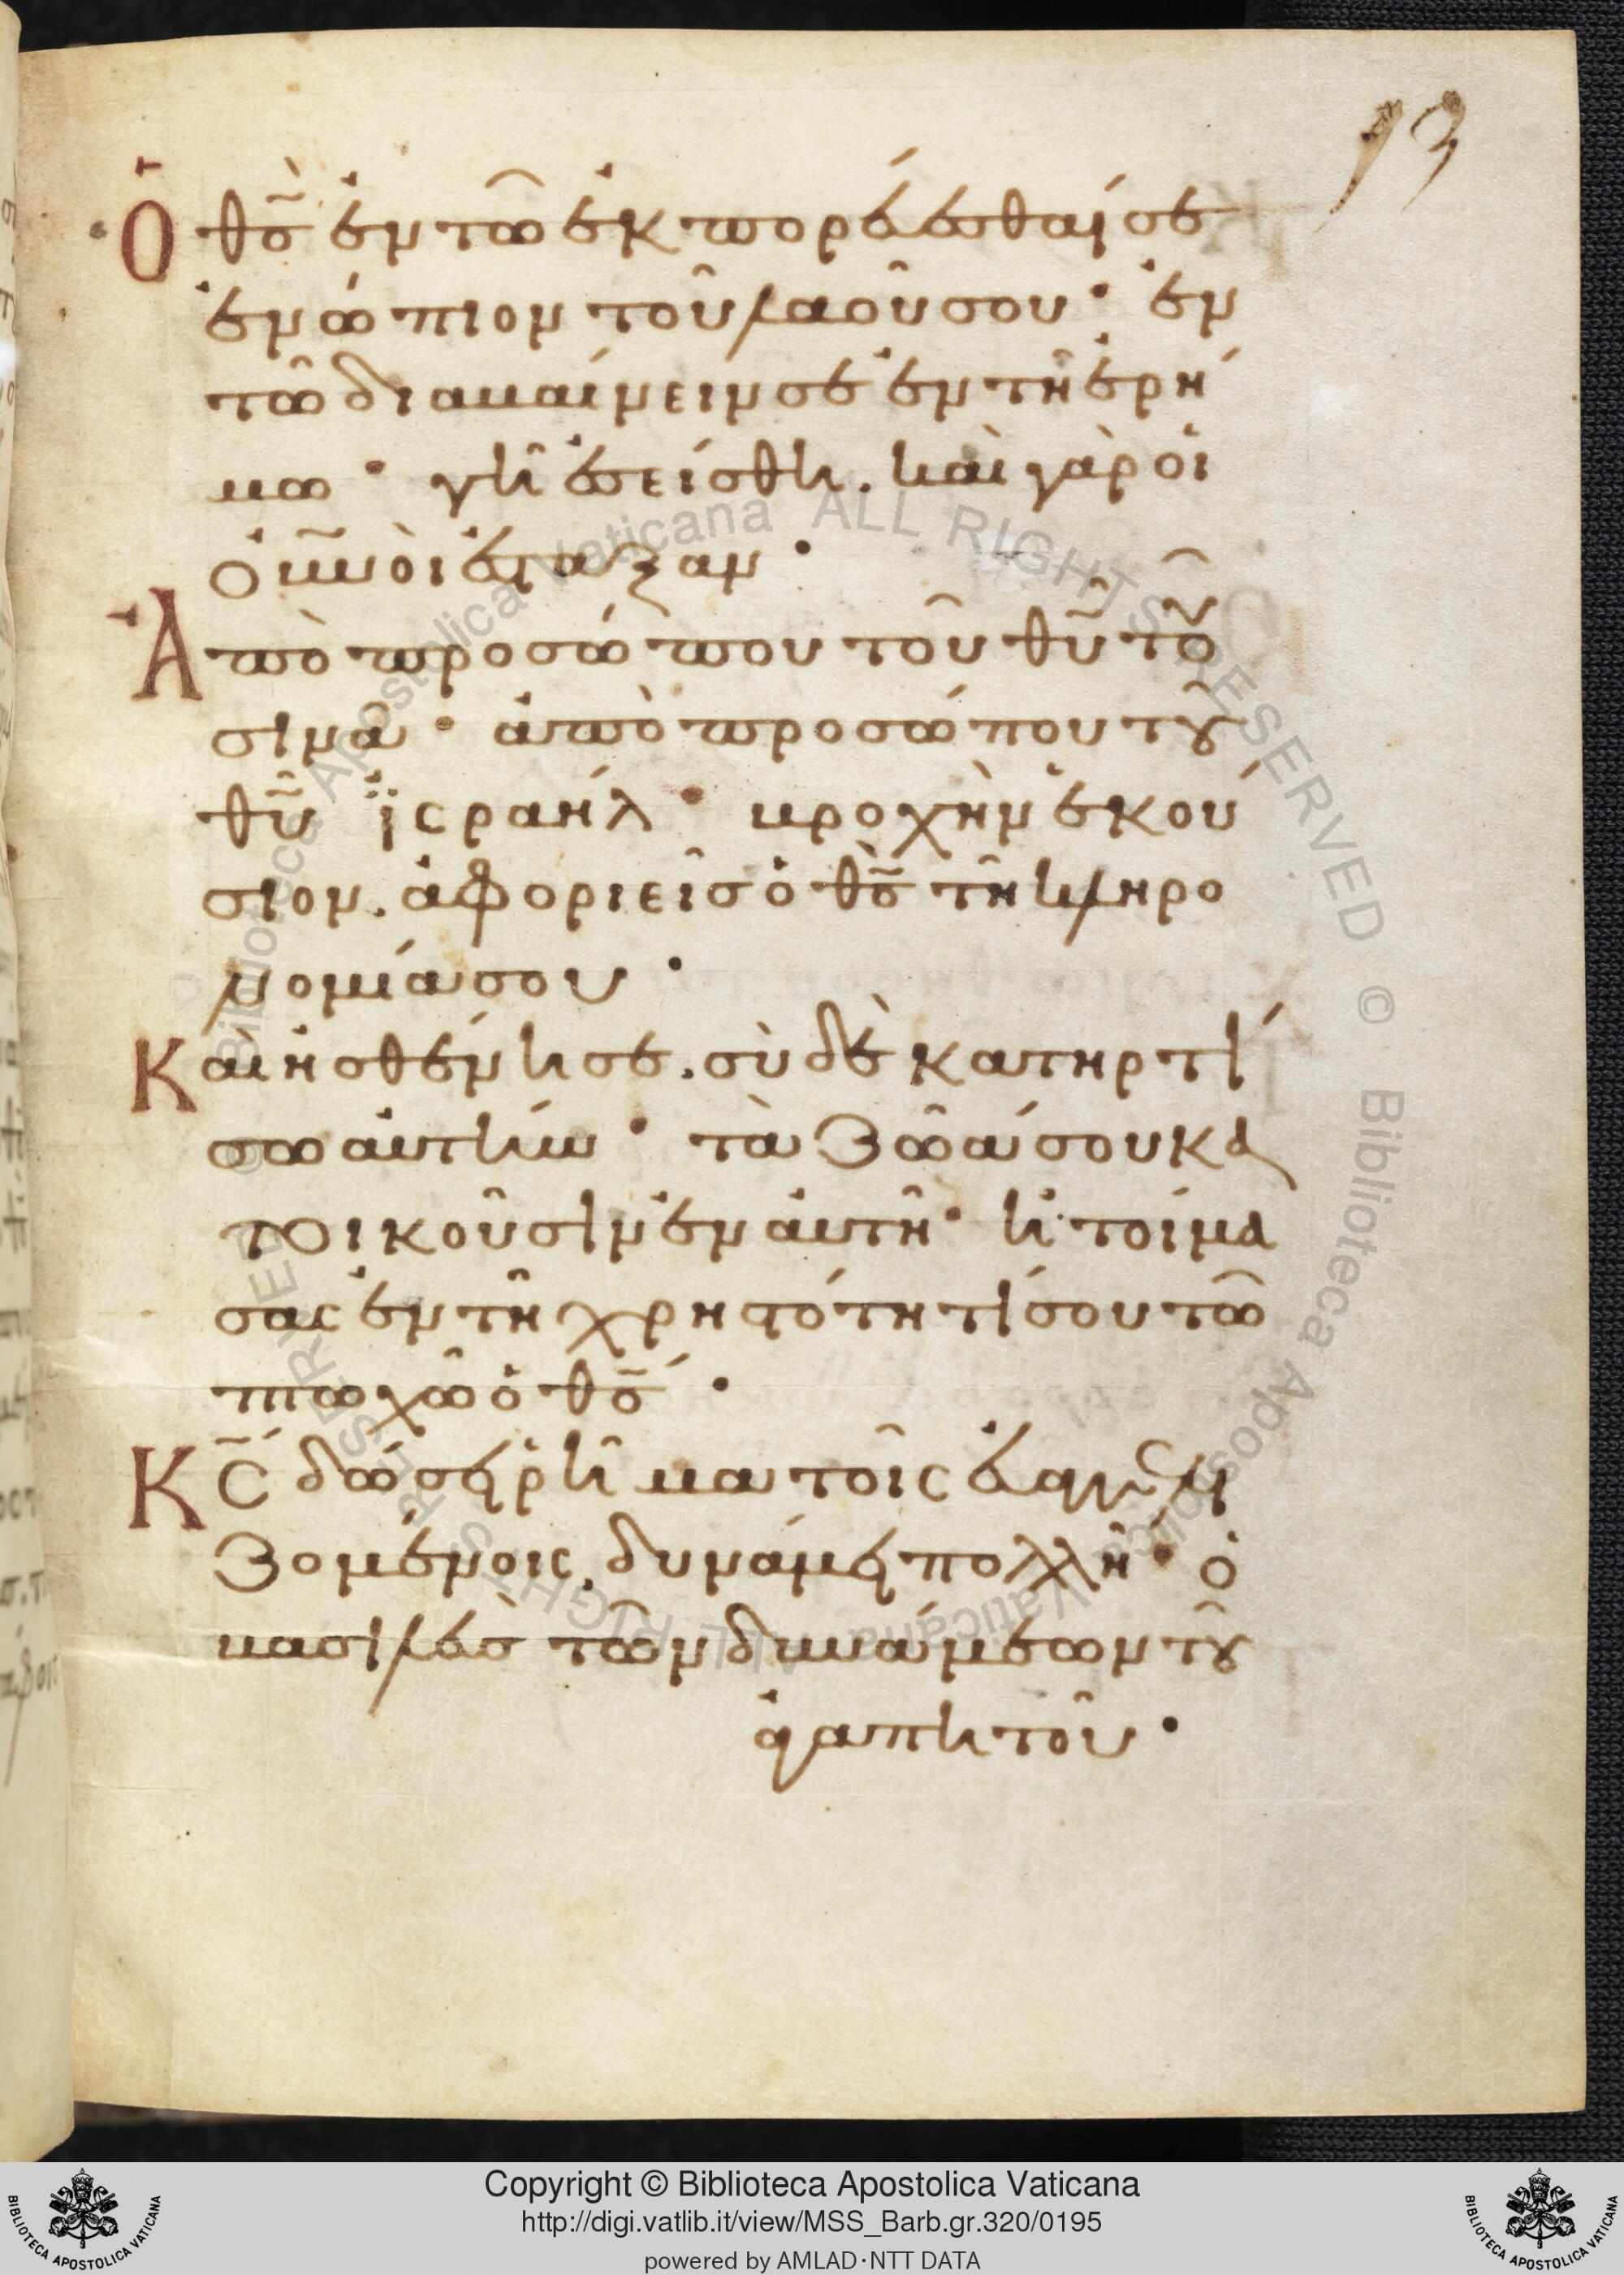 93
Ὁ θ̅ς̅ ἐν τῶ ἐκπορεύεσθαί σε
ἐνώπιον τοῦ λαοῦ σου· ἐν
τῶ διαβαίνειν σε ἐν τῆ ἐρή
μω· γῆ ἐσείσθη. καὶ γὰρ οἱ
οὐ̅νοὶ ἔσταξαν·
Ἀπὸ προσώπου τοῦ θ̅υ̅ τοῦ
σινᾶ· ἀπὸ προσώπου τοῦ
θ̅υ̅ ἰσραήλ· βροχὴν ἑκού
σιον. ἀφοριεῖς ὁ θ̅ς̅ τῆ κληρο
νομία σου·
Καὶ ἠσθένησε. σὺ δὲ κατηρτί
σω αὐτήν· τὰ ζῶά σου κα
τοικοῦσιν ἐν αὐτῆ· ἡτοίμα
σας ἐν τῆ χρηστότητί σου τῶ
πτωχῶ ὁ θ̅ς̅·
Κ̅ς̅ δώσει ῥῆμα τοῖς εὐαγγελι
ζομένοις. δυνάμει πολλῆ· ὁ
βασιλεὺς τῶν δυνάμεων τοῦ
ἀγαπητοῦ·
© Biblioteca Apostolica Vaticana ALL RIGHTS RESERVED © Biblioteca Apostolica Vaticana ALL RIGHTS RESERVED
BIBLIOTECA APOSTOLICA VATICANA
Copyright © Biblioteca Apostolica Vaticana
http://digi.vatlib.it/view/MSS_Barb.gr.320/0195
powered by AMLAD·NTT DATA
BIBLIOTECA APOSTOLICA VATICANA